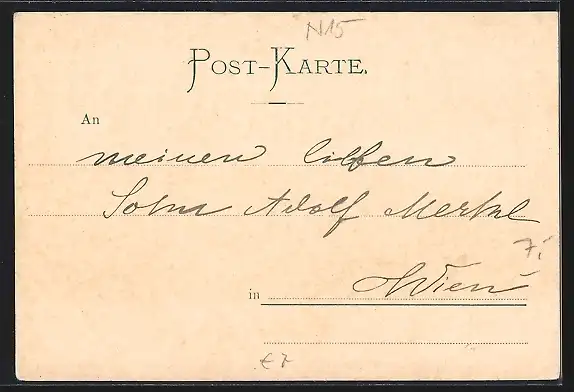 N15
POST-KARTE.
An
meinen lieben
Sohn Adolf Merkl
in Wien
€ 7